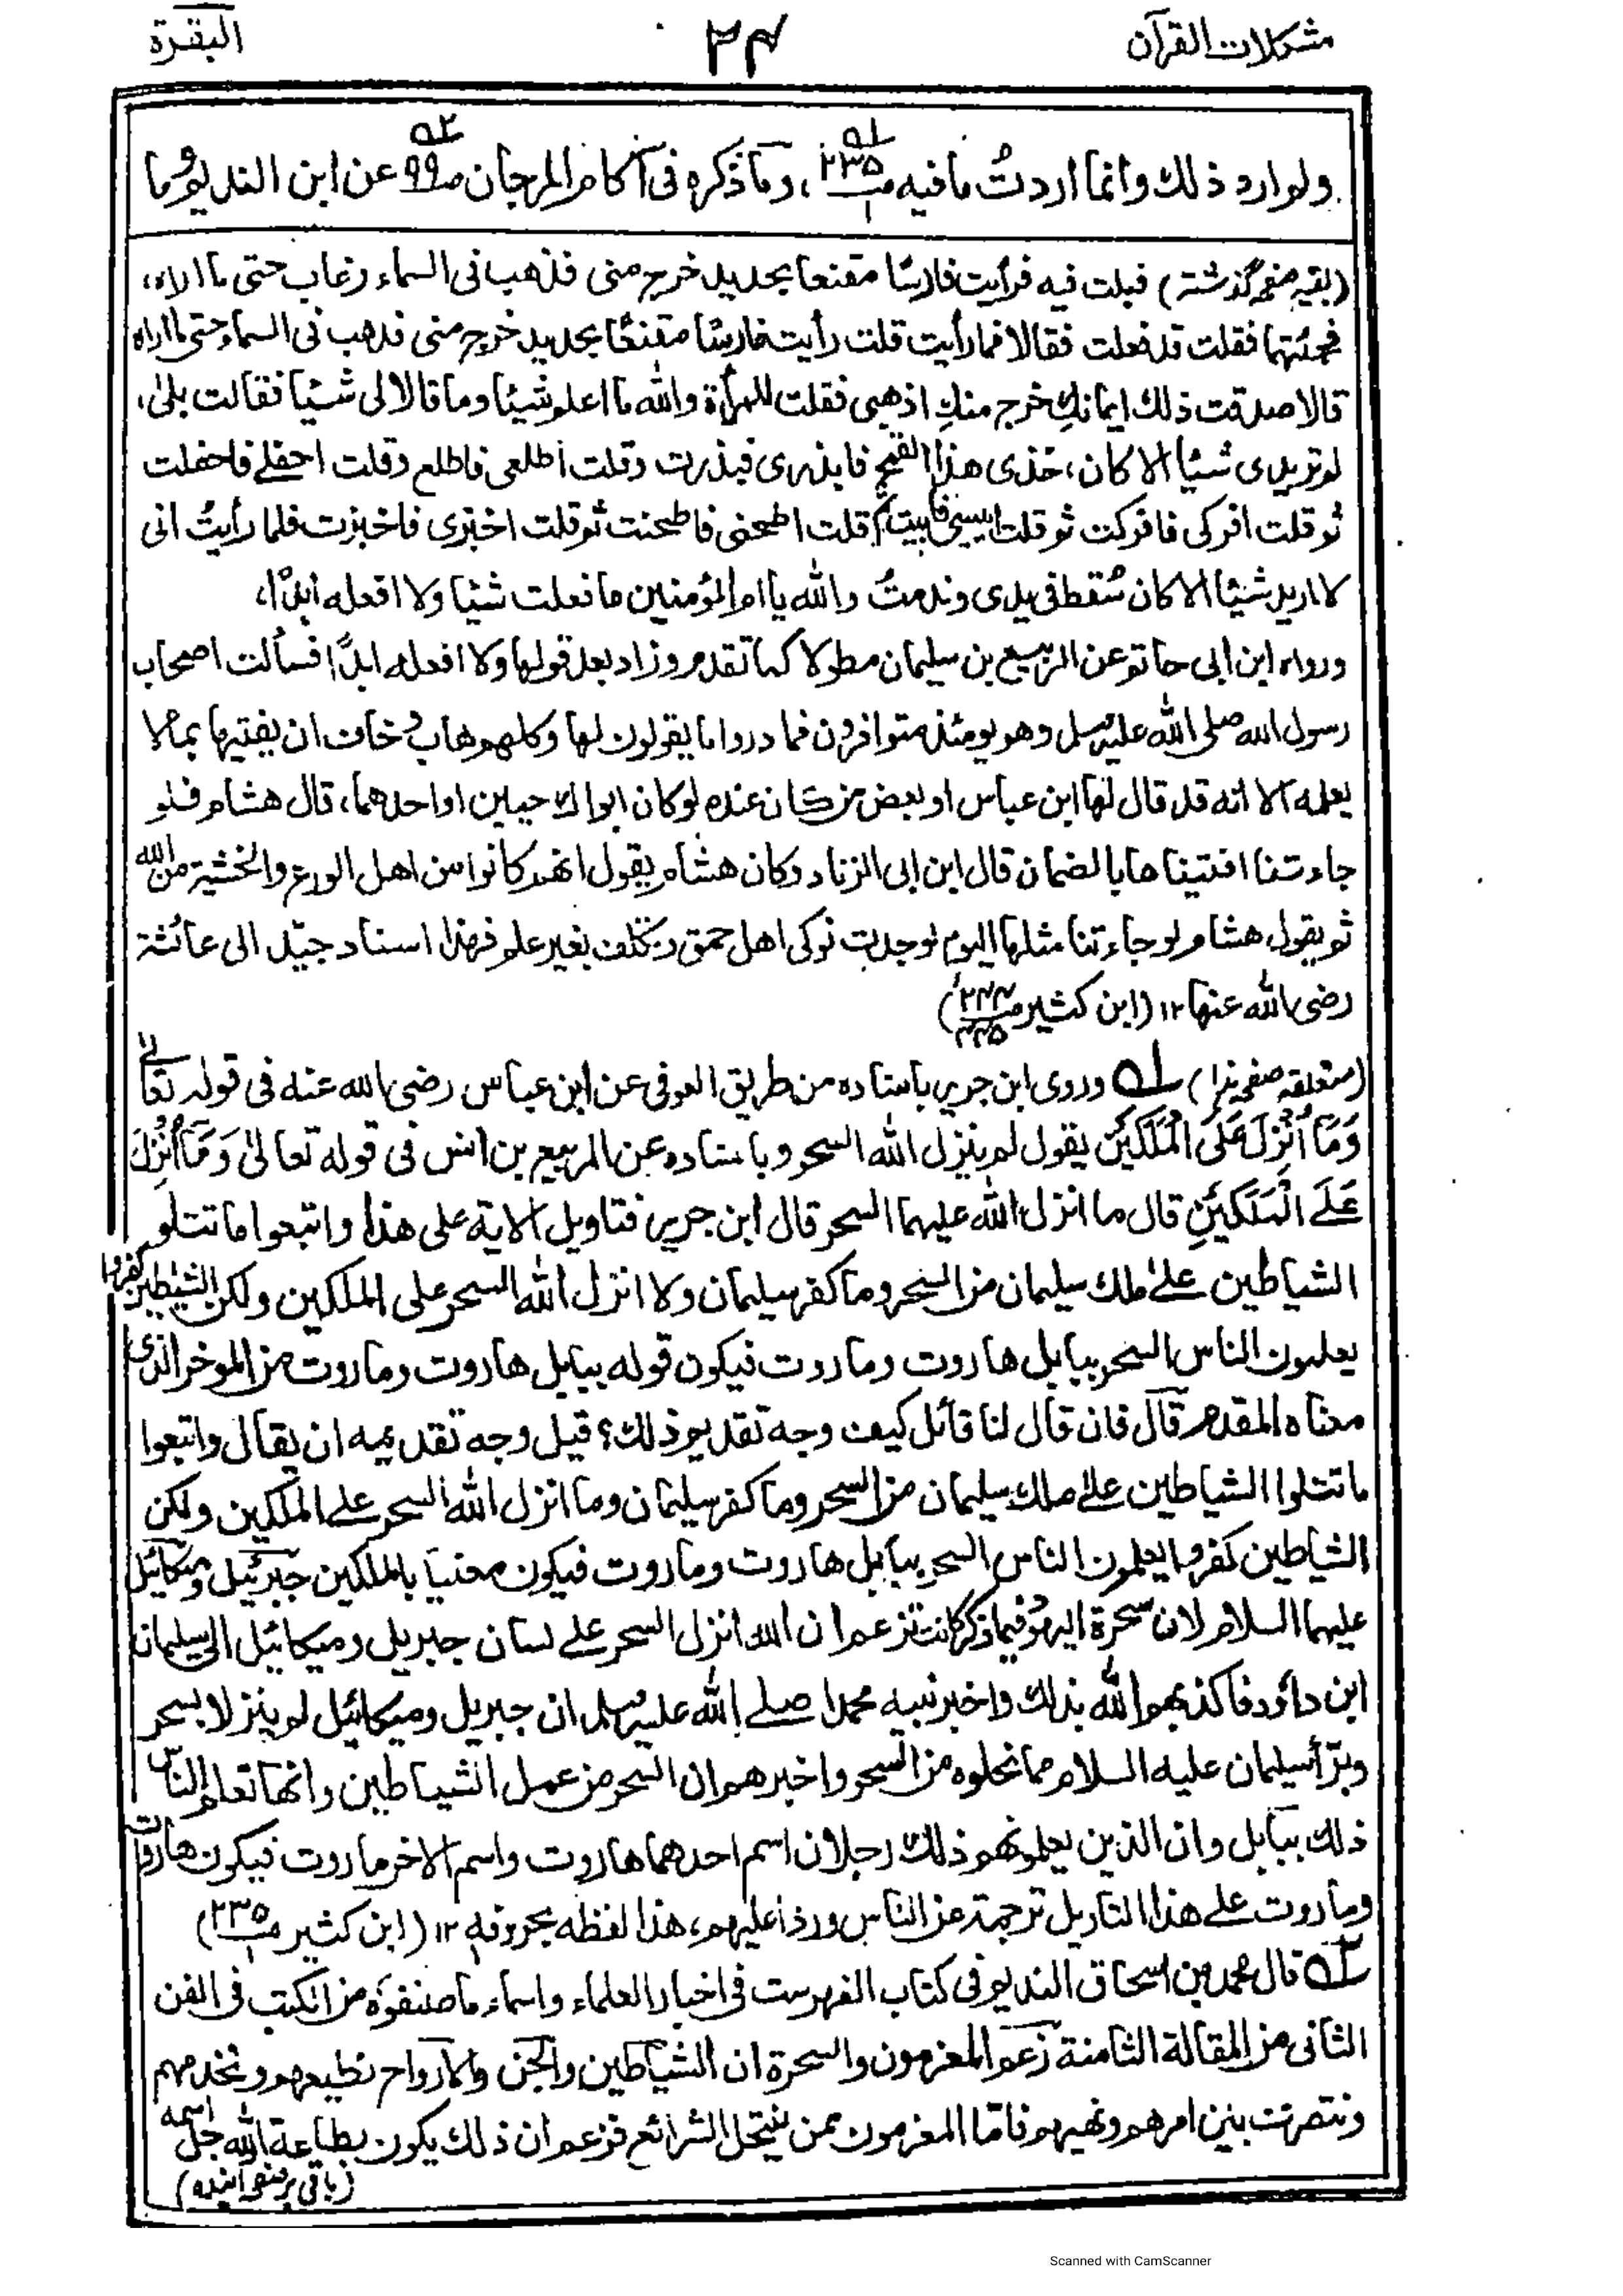 مشكلات القرآن
۲۴
البقرة
ولو ارد ذلك وانما اردتُ ما فيه ص۲۳۵/۱ ۱ه، وما ذكره فى آكام المرجان ص۹۹ ۲ه عن ابن النديم وما
(بقیہ صفحہ گذشتہ) فبلت فيه فرأيت فارسًا مقنعا بحديد خرج منى فذهب فى السماء وغاب حتى ما اراه،
فجئتهما فقلت قد فعلت فقالا فما رأيت قلت رأيت فارسًا مقنعًا بحديد خرج منى فذهب فى السماء حتى ما اراه
قالا صدقت ذلك ايمانكِ خرج منكِ اذهبى فقلت للمرأة والله ما اعلم شيئا وما قالا لى شيئا فقالت بلىٰ،
لم تريدى شيئا الا كان، خذى هذا القمح فابذرى فبذرت وقلت اطلعى فاطلع وقلت احقلے فاحقلت
ثم قلت افركى فافركت ثم قلت ايبسى فايبست ثم قلت اطحنى فاطحنت ثم قلت اخبزى فاخبزت فلما رأيتُ انى
لا اريد شيئا الا كان سُقط فى يدى وندمتُ والله يا ام المؤمنين ما فعلت شيئا ولا افعله ابدًا،
ورواه ابن ابى حاتم عن الربيع بن سليمان مطولا كما تقدم وزاد بعد قولها ولا افعله ابدًا فسألت اصحاب
رسول الله صلى الله عليه وسلم وهم يومئذ متوافرون فما دروا ما يقولون لها وكلهم هاب وخاف ان يفتيها بما لا
يعلمه الا انه قد قال لها ابن عباس او بعض من كان عنده لو كان ابواك حيين او احدهما، قال هشام فلو
جاءتنا افتيناها بالضمان قال ابن ابى الزناد وكان هشام يقول انهم كانوا من اهل الورع والخشية من الله
ثم يقول هشام لو جاءتنا مثلها اليوم لوجدت نوكى اهل حمق وتكلف بغير علم فهذا اسناد جيّد الى عائشة
رضى الله عنها ۱۲ (ابن كثير
(متعلقہ صفحہ ہذا) ۱ه وروى ابن جرير باسناده من طريق العوفى عن ابن عباس رضى الله عنه فى قوله تعالےٰ
وَمَا أُنْزِلَ عَلَى الْمَلَكَيْنِ يقول لم ينزل الله السحر وباسناده عن الربيع بن انس فى قوله تعالىٰ وَمَا أُنْزِلَ
عَلَے الْمَلَكَيْنِ قال ما انزل الله عليهما السحر قال ابن جرير فتاويل الاية على هذا واتبعوا ما تتلو
الشياطين علےٰ ملك سليمان من السحر وما كفر سليمان ولا انزل الله السحر على الملكين ولكن الشيٰطين كفروا
يعلمون الناس السحر ببابل هاروت وماروت فيكون قوله ببابل هاروت وماروت من الموخر الذى
معناه المقدم قال فان قال لنا قائل كيف وجه تقديم ذلك؟ قيل وجه تقديمه ان يقال واتبعوا
ما تتلوا الشياطين علےٰ ملك سليمان من السحر وما كفر سليمان وما انزل الله السحر علے الملكين ولكن
الشياطين كفروا يعلمون الناس السحر ببابل هاروت وماروت فيكون معنيا بالملكين جبرئيل وميكائيل
عليهما السلام لان سحرة اليهود فيما ذكر كانت تزعم ان الله انزل السحر علے لسان جبريل وميكائيل الى سليمان
ابن داؤد فاكذبهم الله بذلك واخبر نبيه محمدا صلے الله عليه وسلم ان جبريل وميكائيل لم ينزلا بسحر
وبرّأ سليمان عليه السلام مما نحلوه من السحر واخبرهم ان السحر من عمل الشياطين وانها تعلم الناس
ذلك ببابل وان الذين يعلمونهم ذلك رجلان اسم احدهما هاروت واسم الاخر ماروت فيكون هاروت
وماروت علے هذا التاويل ترجمة عن الناس وردًا عليهم، هذا لفظه بحروفه ۱۲ (ابن كثير ص۲۳۵/۱)
۲ه قال محمد بن اسحاق النديم فى كتاب الفهرست فى اخبار العلماء واسماء ما صنفوه من الكتب فى الفن
الثانى من المقالة الثامنة زعم المعزمون والسحرة ان الشياطين والجن والارواح تطيعهم وتخدمهم
وتتصرف بين امرهم ونهيهم فاما المعزمون ممن ينتحل الشرائع فزعم ان ذلك يكون بطاعة الله جل اسمه
(باقی بر صفحہ آئندہ)
Scanned with CamScanner